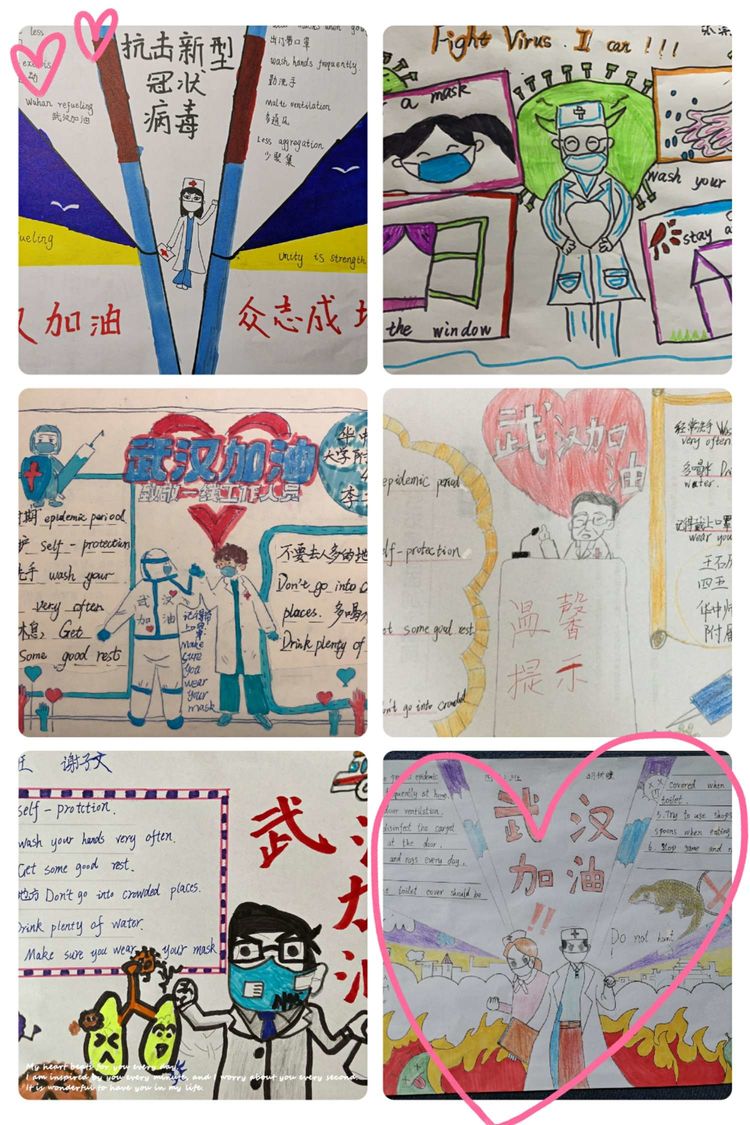 less
抗击新型
冠状
病毒
出门带口罩
wash hands frequently
勤洗手
Make ventilation
多通风
Less aggregation
少聚集
Wuhan refueling
武汉加油
ueling
Unity is strength
加油
众志成
Fight Virus. I can !!!
a mask
wash your
stay
the window
武汉加油
致敬一线工作人员
华中
大学附
李
epidemic periood
self - protection
wash your
very often
休息, Get
Some good rest
武汉
加油
记得带
上口罩
make
sure
you
wear
your
mask
不要去人多的地
Don't go into C
places. 多喝水
Drink plenty of
武汉加
油
epidemic period
lf-protection
ot some good rest
on't go into Crowded
温馨
提示
经常洗手 Was
very often
多喝水 Dri
water.
记得戴上口罩
wear you
王石
四五
华中师
附属
谢子文
self - protction.
wash your hands very often.
Get some good rest.
地方 Don't go into crowded places.
Drink plenty of water.
Make sure you wear your mask
武
加
油
My heart beats for you every day.
I am inspired by you every minute, and I worry about you every second.
It is wonderful to have you in my life.
epidemic
equently at home
door ventilation.
disinfect the carpet
at the door.
and rags every day.
toilet cover should be
武汉
加油
!!
covered when
toilet.
5. Try to use
spoons when eating
6. Stop game and
Do not hunt